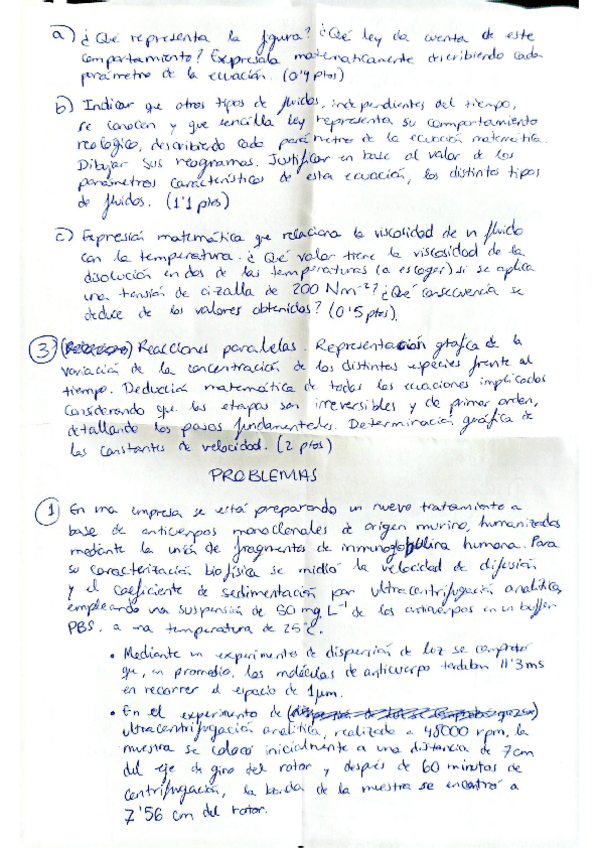 a) ¿Qué representa la figura? ¿Qué ley da cuenta de este
comportamiento? Expresala matematicamente describiendo cada
parámetro de la ecuación. (0'4 ptos)
b) Indicar que otros tipos de fluidos, independientes del tiempo,
se conocen y que sencilla ley representa su comportamiento
reologico, describiendo cada parámetro de la ecuación matemática.
Dibujar sus reogramas. Justificar en base al valor de los
parámetros característicos de esta ecuación, los distintos tipos
de fluidos. (1'1 ptos)
c) Expresión matemática que relaciona la viscosidad de un fluido
con la temperatura. ¿Qué valor tiene la viscosidad de la
disolución en dos de las temperaturas (a escoger) si se aplica
una tensión de cizalla de 200 Nm⁻²? ¿Qué consecuencia se
deduce de los valores obtenidos? (0'5 ptos)
3 Reacciones paralelas. Representación gráfica de la
variación de la concentración de las distintas especies frente al
tiempo. Deducción matemática de todas las ecuaciones implicadas
considerando que las etapas son irreversibles y de primer orden,
detallando los pasos fundamentales. Determinación gráfica de
las constantes de velocidad. (2 ptos)
PROBLEMAS
1 En una empresa se está preparando un nuevo tratamiento a
base de anticuerpos monoclonales de origen murino, humanizados
mediante la unión de fragmentos de inmunoglobulina humana. Para
su caracterización biofísica se midió la velocidad de difusión
y el coeficiente de sedimentación por ultracentrifugación analítica,
empleando una suspensión de 50 mg L⁻¹ de los anticuerpos en un buffer
PBS, a una temperatura de 25°C.
• Mediante un experimento de dispersión de luz se comprobó
que, en promedio, las moléculas de anticuerpo tardaban 11'3 ms
en recorrer el espacio de 1 μm.
• En el experimento de
ultracentrifugación analítica, realizado a 48000 rpm, la
muestra se colocó inicialmente a una distancia de 7 cm
del eje de giro del rotor y después de 60 minutos de
centrifugación, la banda de la muestra se encontró a
7'56 cm del rotor.